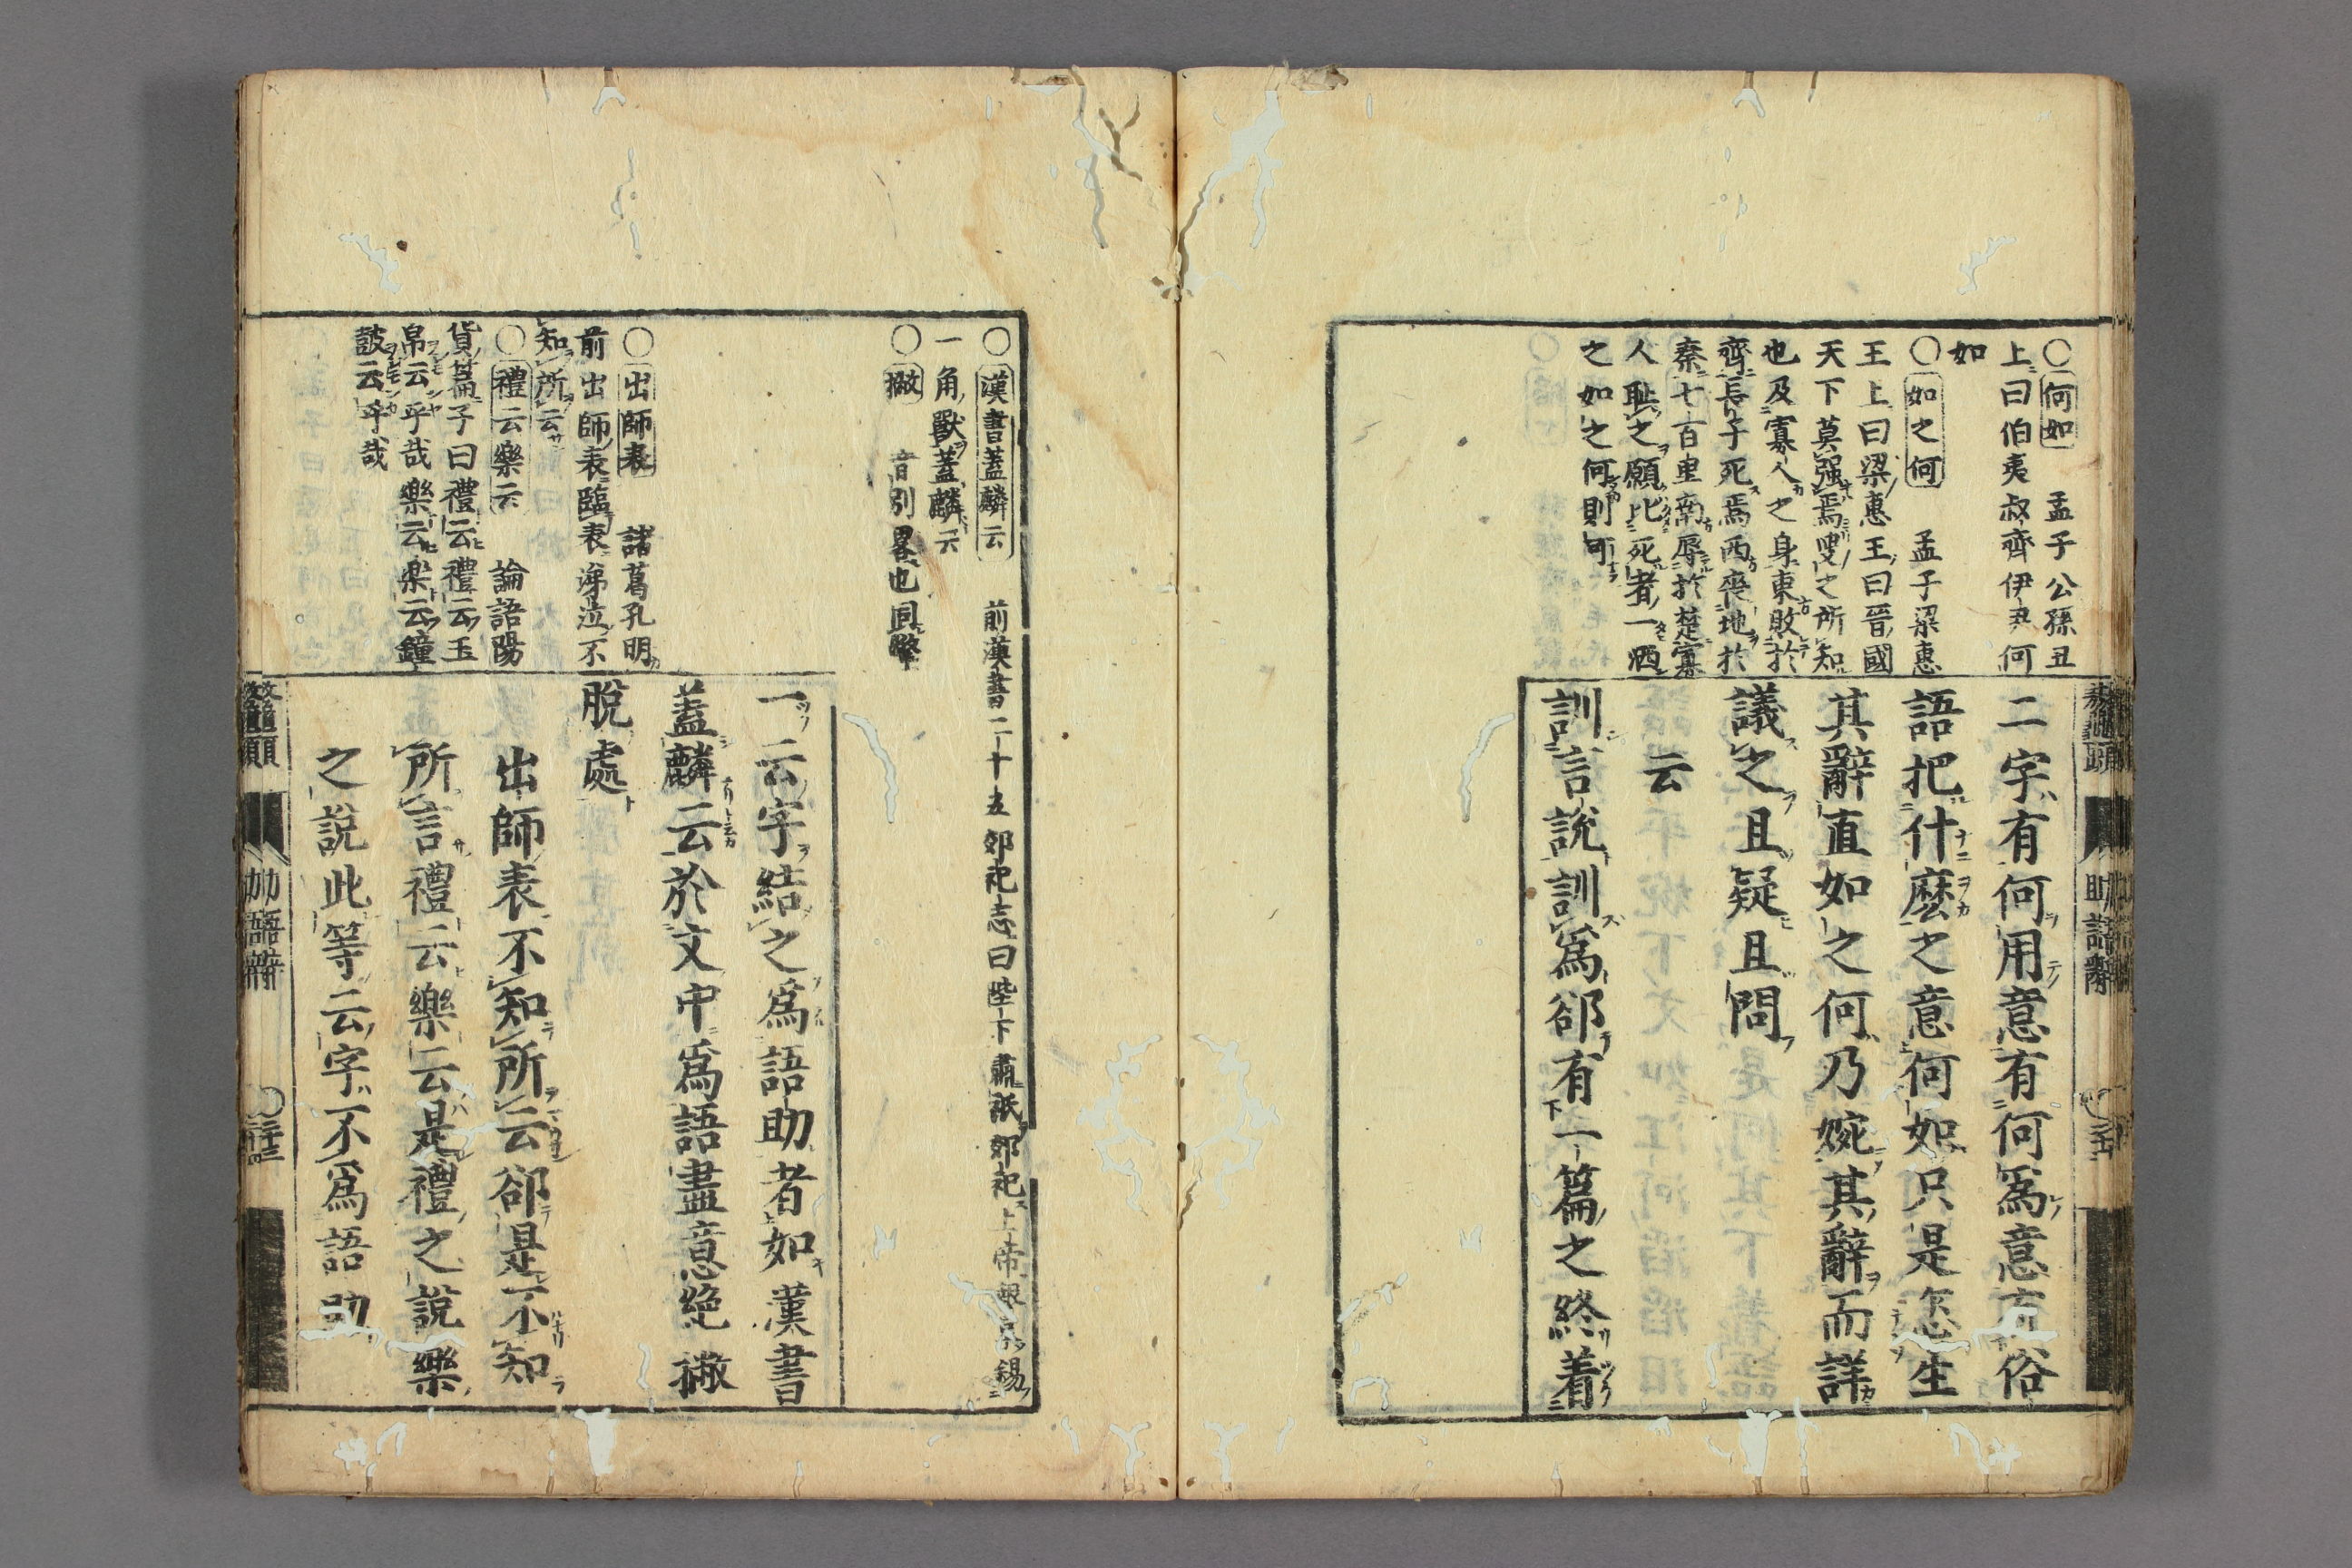 ○何如 孟子公孫丑
上曰伯夷叔齊伊尹何
如
○如之何 孟子梁惠
王上曰梁惠王曰晉國
天下莫强焉叟之所知
也及寡人之身東敗於
齊長子死焉西喪地於
秦七百里南辱於楚寡
人耻之願比死者一洒
之如之何則可
二字有何用意有何爲意方俗
語把什麽之意何如只是怎生
其辭直如之何乃婉其辭而詳
議之且疑且問
云
訓言說訓爲卻有一篇之終着
助語辭
○漢書蓋麟云 前漢書二十五郊祀志曰陛下肅祇郊祀上帝報享錫
一角獸蓋麟云
○撇 音別畧也同擎
○出師表 諸葛孔明
前出師表臨表涕泣不
知所云
○禮云樂云 論語陽
貨篇子曰禮云禮云玉
帛云乎哉樂云樂云鐘
鼓云乎哉
一云字結之爲語助者如漢書
蓋麟云於文中爲語盡意絕撇
脫處
出師表不知所云卻是不知
所言禮云樂云是禮之說樂
之說此等云字不爲語助
鼇頭
助語辭